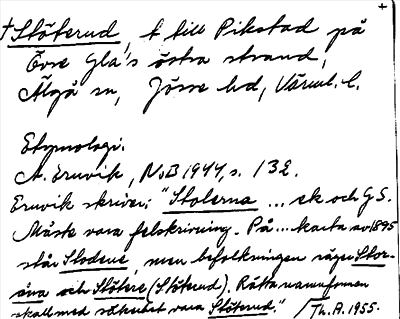 +
† Stöterud, t. till Pikstad på
Övre Gla's östra strand,
Älgå sn, Jösse hd, Värml. l.
Etymologi:
A. Ernvik, NoB 1944, s. 132.
Ernvik skriver: "Stolerna ... ek och G.S.
Måste vara felskrivning. På ... karta av 1895
står Stodene, men befolkningen säger Stor-
öna och Stötere (Stöterud). Rätta namnformen
skall med säkerhet vara Stöterud." / Th. A. 1955.